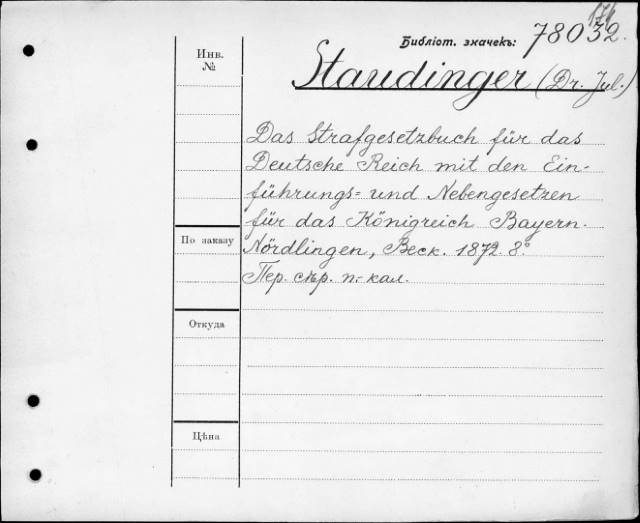 174
Библіот. значекъ: 78032.
Инв.
№
Staudinger (Dr. Jul.)
Das Strafgesetzbuch für das
Deutsche Reich mit den Ein-
führungs= und Nebengesetzen
für das Königreich Bayern.
По заказу
Nördlingen, Beck. 1872. 8°.
Пер. сѣр. п. кал.
Откуда
Цѣна